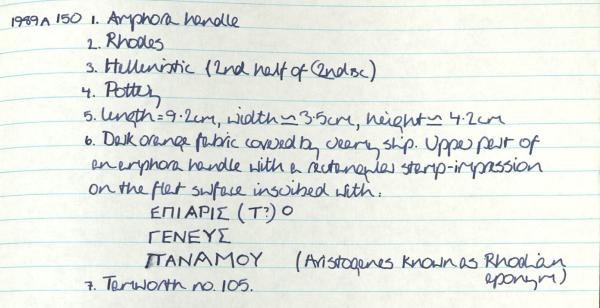 1989A 150 1. Amphora handle
2. Rhodes
3. Hellenistic (2nd half of C2nd BC)
4. Pottery
5. length = 9.2cm, width ≃ 3.5cm, height ≃ 4.2cm
6. Dark orange fabric covered by creamy slip. Upper part of
an amphora handle with a rectangular stamp-impression
on the flat surface inscribed with:
ΕΠΙ ΑΡΙΣ (Τ?) Ο
ΓΕΝΕΥΣ
ΠΑΝΑΜΟΥ (Aristogenes known as Rhodian
eponym)
7. Tarworth no. 105.